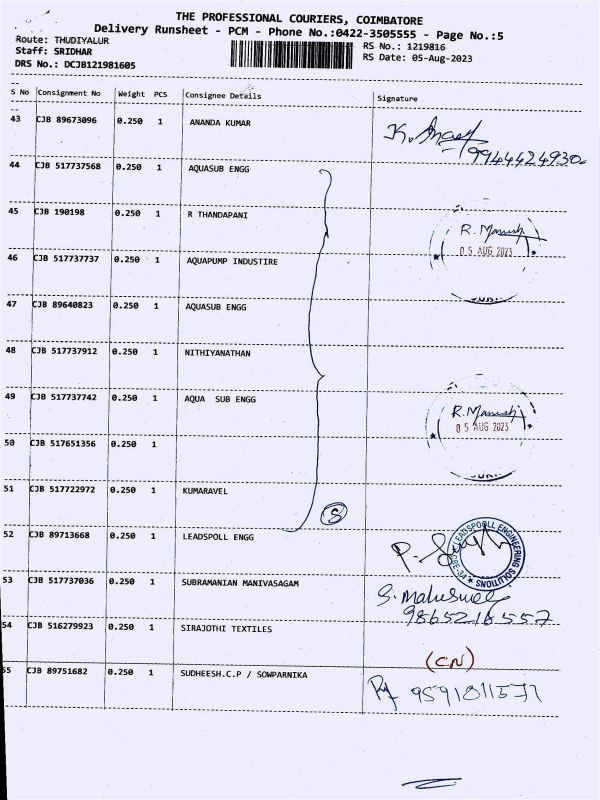 THE PROFESSIONAL COURIERS, COIMBATORE
Delivery Runsheet - PCM - Phone No.:0422-3505555 - Page No.:5
Route: THUDIYALUR
RS No.: 1219816
Staff: SRIDHAR
RS Date: 05-Aug-2023
DRS No.: DCJB121981605
S No Consignment No Weight PCS Consignee Details Signature
43 CJB 89673096 0.250 1 ANANDA KUMAR
9944424930
44 CJB 517737568 0.250 1 AQUASUB ENGG
45 CJB 190198 0.250 1 R THANDAPANI
R. Manish
05 AUG 2023
46 CJB 517737737 0.250 1 AQUAPUMP INDUSTIRE
47 CJB 89640823 0.250 1 AQUASUB ENGG
48 CJB 517737912 0.250 1 NITHIYANATHAN
49 CJB 517737742 0.250 1 AQUA SUB ENGG
R. Manish
05 AUG 2023
50 CJB 517651356 0.250 1
51 CJB 517722972 0.250 1 KUMARAVEL
8
52 CJB 89713668 0.250 1 LEADSPOLL ENGG
LEADSPOOLL ENGINEERING SOLUTIONS
53 CJB 517737036 0.250 1 SUBRAMANIAN MANIVASAGAM
9865216557
54 CJB 516279923 0.250 1 SIRAJOTHI TEXTILES
(CN)
55 CJB 89751682 0.250 1 SUDHEESH.C.P / SOWPARNIKA
9591811571